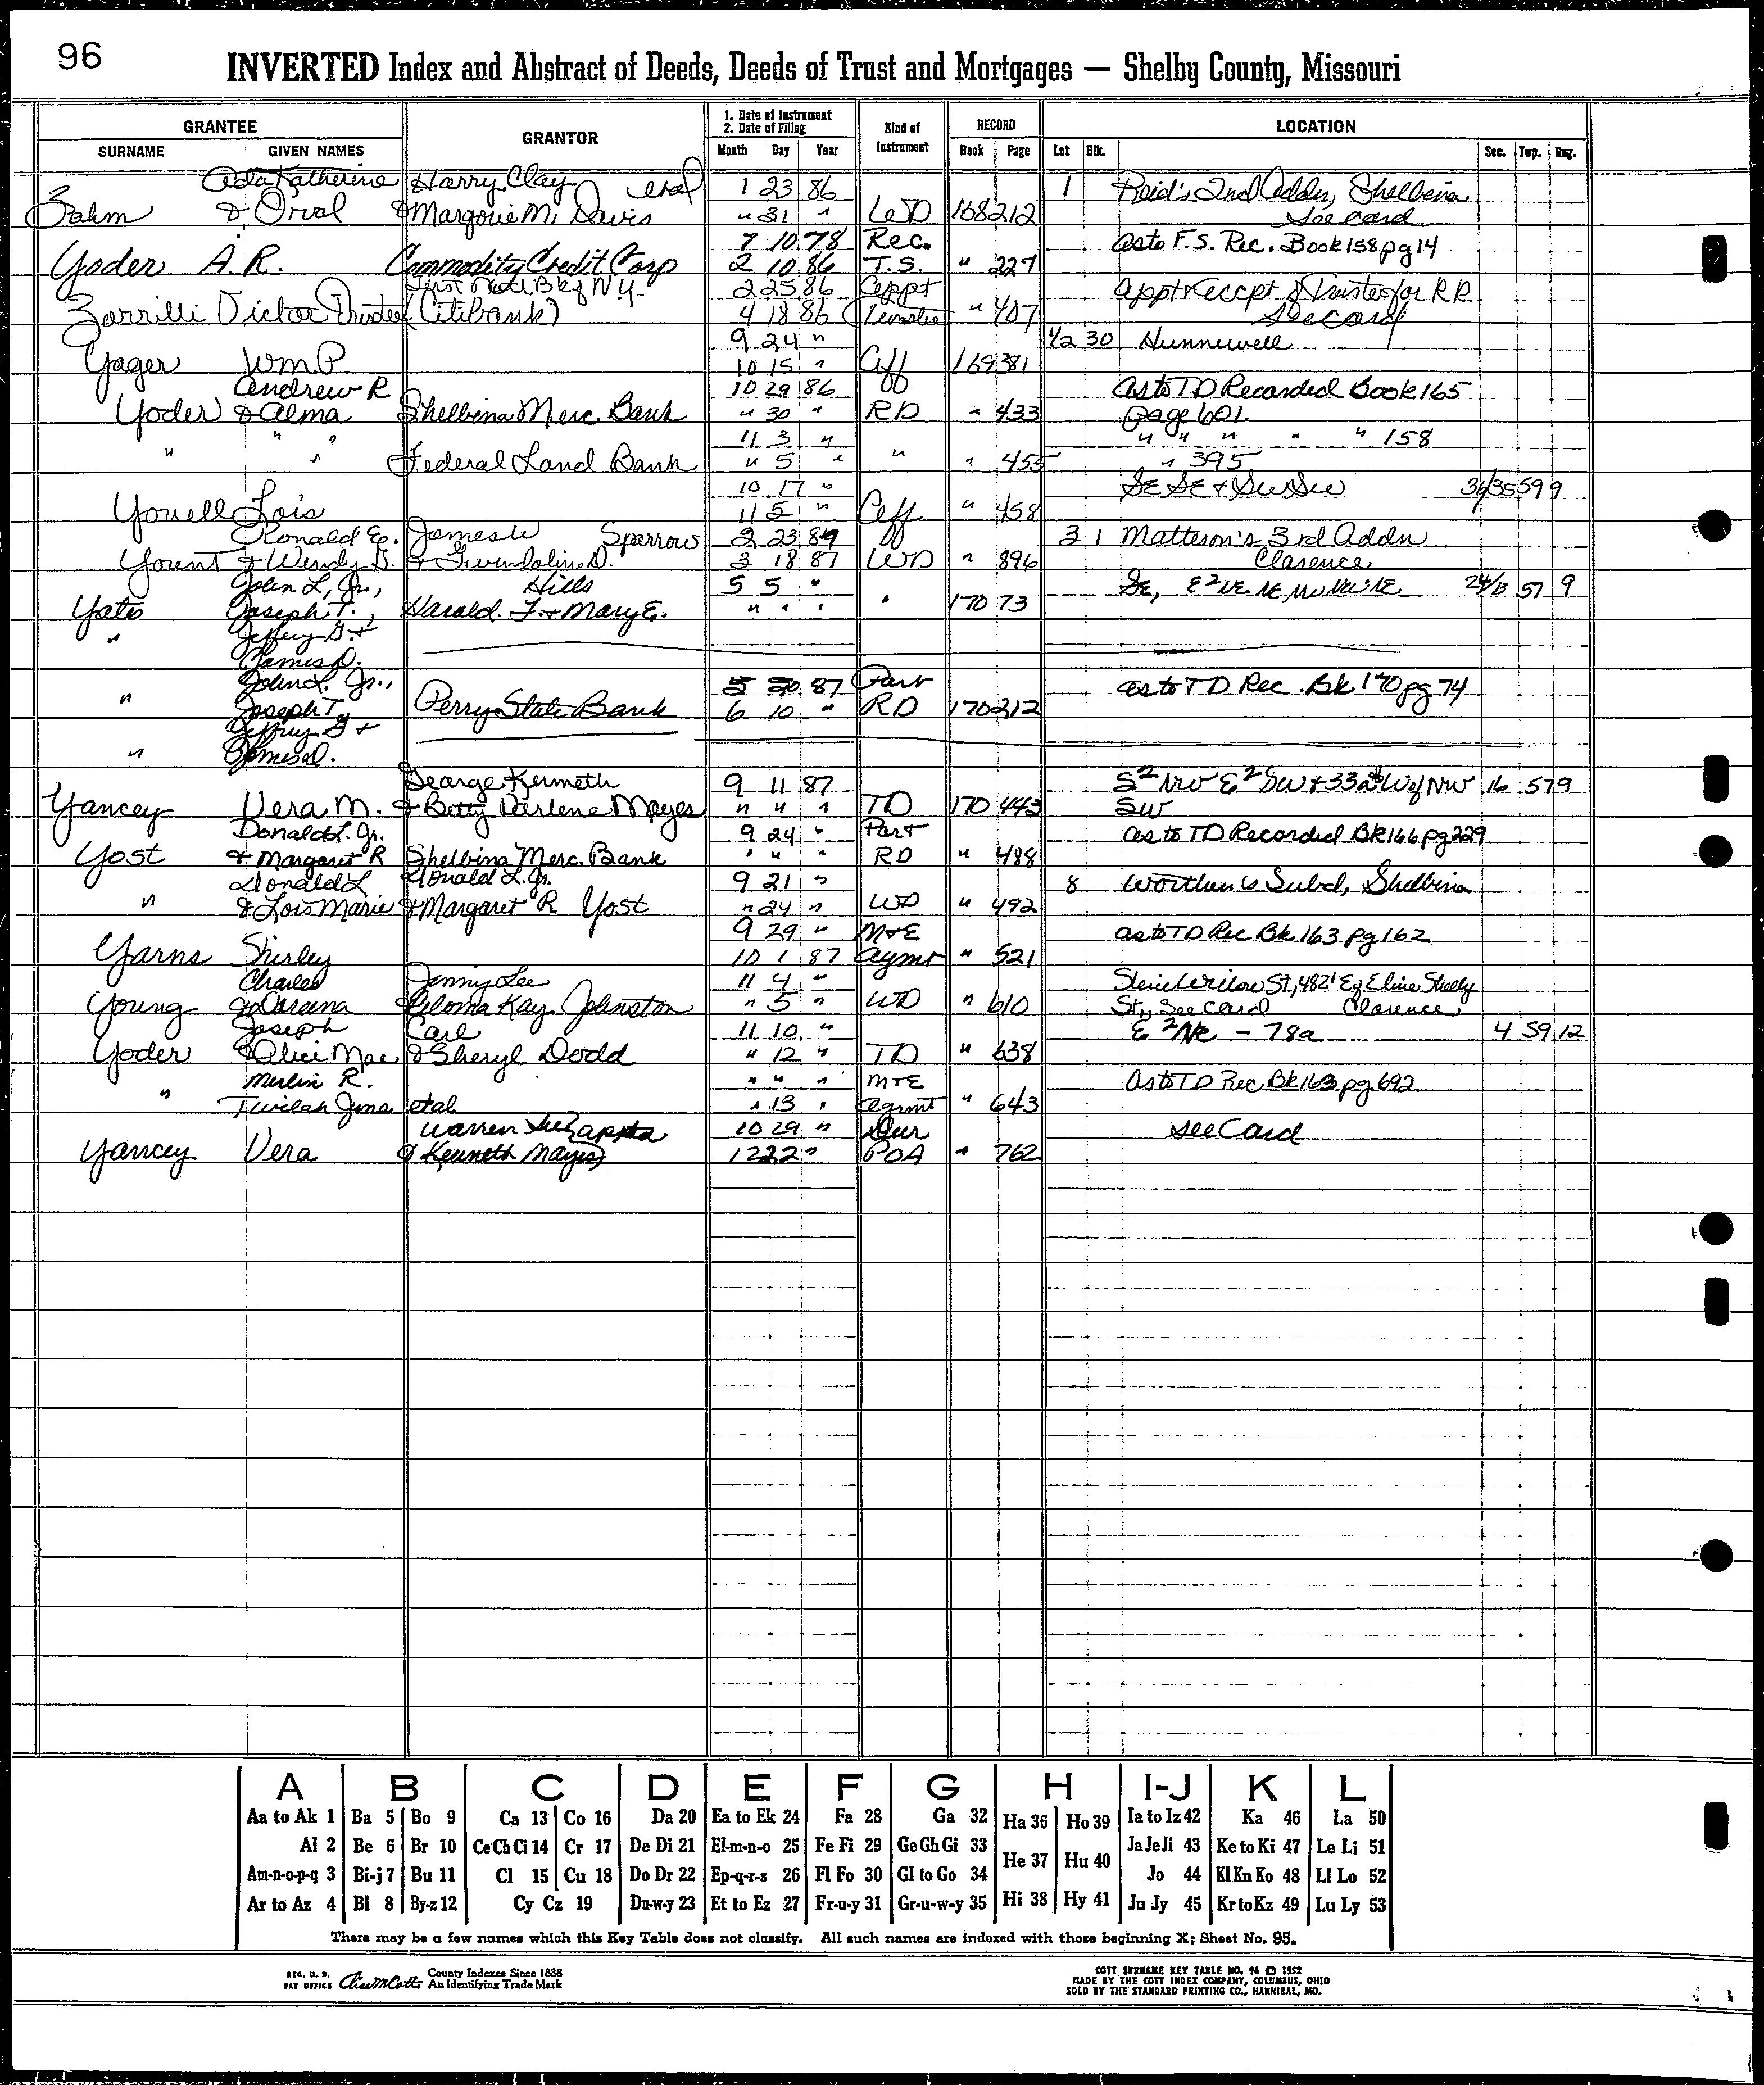 96
INVERTED Index and Abstract of Deeds, Deeds of Trust and Mortgages — Shelby County, Missouri
GRANTEE GRANTOR 1. Date of Instrument 2. Date of Filing Kind of Instrument RECORD LOCATION
SURNAME GIVEN NAMES Month Day Year Book Page Lot Blk. Sec. Twp. Rng.
Ada Katherine Harry Clay etal 1 23 86 1 Reid's 2nd Addn, Shelbina
Zahm & Orval & Margorie M. Davis " 31 " WD 168 212 See card
7 10 78 Rec. as to F.S. Rec. Book 158 pg 14
Yoder A.R. Commodity Credit Corp 2 10 86 T.S. " 227
First Natl Bk of N.Y. 2 25 86 Appt Appt & Accpt of Trustee for R.R.
Zorrilli Victor Trustee (Citibank) 4 18 86 Trustee " 407 See Card
9 24 " 1/2 30 Hunnewell
Yager Wm P. 10 15 " Aff 169 381
Andrew R 10 29 86 As to TD Recorded Book 165
Yoder & Alma Shelbina Merc. Bank " 30 " RD " 433 page 601.
" " 11 3 " " " " " " 158
" " Federal Land Bank " 5 " " " 455 " 395
10 17 " SE SE & SW SW 36/35 59 9
Youell Lois 11 5 " Aff " 458
Ronald E. James W Sparrow 2 23 87 3 1 Matteson's 3rd Addn
Yount & Wendy G. & Gwendoline D. 3 18 87 WD " 896 Clarence
John L, Jr., Hills 5 5 " SE, E² NE NE 24/13 57 9
Yates Joseph T., Harold F. & Mary E. " " " " 170 73
" Jeffery G. &
James D.
John L. Jr., 5 20 87 Part as to TD Rec. Bk 170 pg 74
" Joseph T, Perry State Bank 6 10 " RD 170 212
Jeffrey G &
" James D.
George Kenneth 9 11 87 S² NW E² SW & 33a W of NW 16 57 9
Yancey Vera M. & Betty Darlene Mayes " " " TD 170 443 SW
Donald L. Jr. 9 24 " Part as to TD Recorded Bk 166 pg 229
Yost & Margaret R Shelbina Merc. Bank " " " RD " 488
Donald L Donald L. Jr. 9 21 " 8 Worthen's Subd, Shelbina
" & Lois Marie & Margaret R Yost " 24 " WD " 492
9 29 " M&E as to TD Rec Bk 163 pg 162
Yarns Shirley 10 1 87 Agmt " 521
Charles Jenny Lee 11 4 " St, 482' E Eline Shelby
Young & Darlena Paloma Kay Johnston " 5 " WD " 610 St, See Card Clarence
Joseph Carl 11 10 " E² NE - 78a 4 59 12
Yoder & Alice Mae & Sheryl Dodd " 12 " TD " 638
Merlin R. " " " M&E As to TD Rec Bk 163 pg 692
" Twilah June etal " 13 " Agrmt " 643
Warren 10 29 " Dur see Card
Yancey Vera & Kenneth Mayes) 12 22 " POA " 762
A B C D E F G H I-J K L
Aa to Ak 1 Ba 5 Bo 9 Ca 13 Co 16 Da 20 Ea to Ek 24 Fa 28 Ga 32 Ha 36 Ho 39 Ia to Iz 42 Ka 46 La 50
Al 2 Be 6 Br 10 Ce Ch Ci 14 Cr 17 De Di 21 El-m-n-o 25 Fe Fi 29 Ge Gh Gi 33 He 37 Hu 40 Ja Je Ji 43 Ke to Ki 47 Le Li 51
Am-n-o-p-q 3 Bi-j 7 Bu 11 Cl 15 Cu 18 Do Dr 22 Ep-q-r-s 26 Fl Fo 30 Gl to Go 34 Jo 44 Kl Kn Ko 48 Ll Lo 52
Ar to Az 4 Bl 8 By-z 12 Cy Cz 19 Du-w-y 23 Et to Ez 27 Fr-u-y 31 Gr-u-w-y 35 Hi 38 Hy 41 Ju Jy 45 Kr to Kz 49 Lu Ly 53
There may be a few names which this Key Table does not classify. All such names are indexed with those beginning X; Sheet No. 95.
REG. U. S. PAT OFFICE County Indexes Since 1888 An Identifying Trade Mark
COTT SURNAME KEY TABLE NO. 96 © 1952
MADE BY THE COTT INDEX COMPANY, COLUMBUS, OHIO
SOLD BY THE STANDARD PRINTING CO., HANNIBAL, MO.